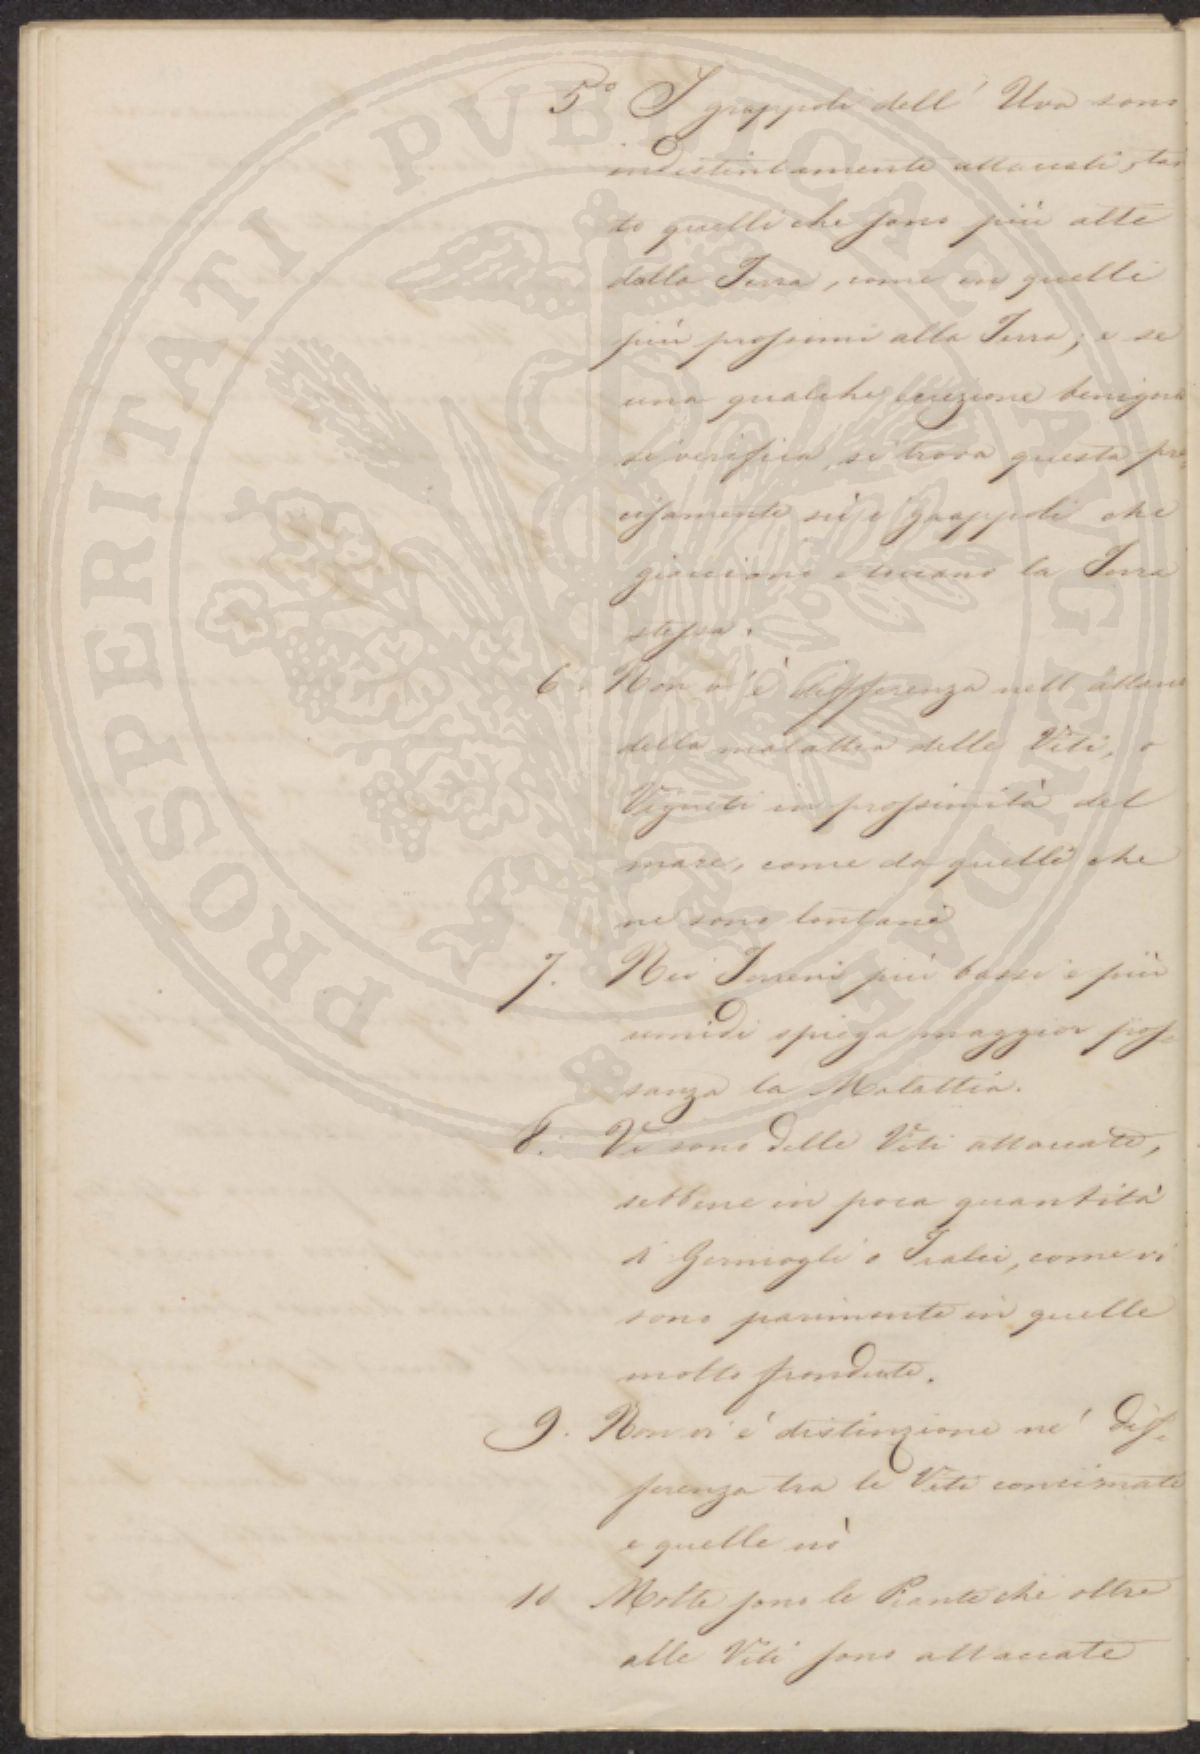 5º I grappoli dell' Uva sono
indistintamente attaccati, tan
to quelli che sono più alti
dalla Terra, come in quelli
più prossimi alla Terra; e se
una qualche eccezione benigna
si verifica, si trova questa pre,
cisamente sù i grappoli che
giacciono e toccano la Terra
stessa.
6. Non v'è differenza nell'attacco
della malattia delle Viti, o
Vigneti in prossimità del
mare, come da quelli che
ne sono lontani
7. Nei Terreni più bassi e più
umidi spiega maggior pos,
sanza la Malattia.
8. Vi sono delle Viti attaccate,
sebbene in poca quantità
di Germogli o Tralci, come vi
sono parimente in quelle
molto frondute.
9. Non vi è distinzione ne' dif,
ferenza tra le Viti concimate
e quelle nò
10 Molte sono le Piante che oltre
alle Viti sono attaccate
PROSPERITATI PVBLICAE AVGENDAE